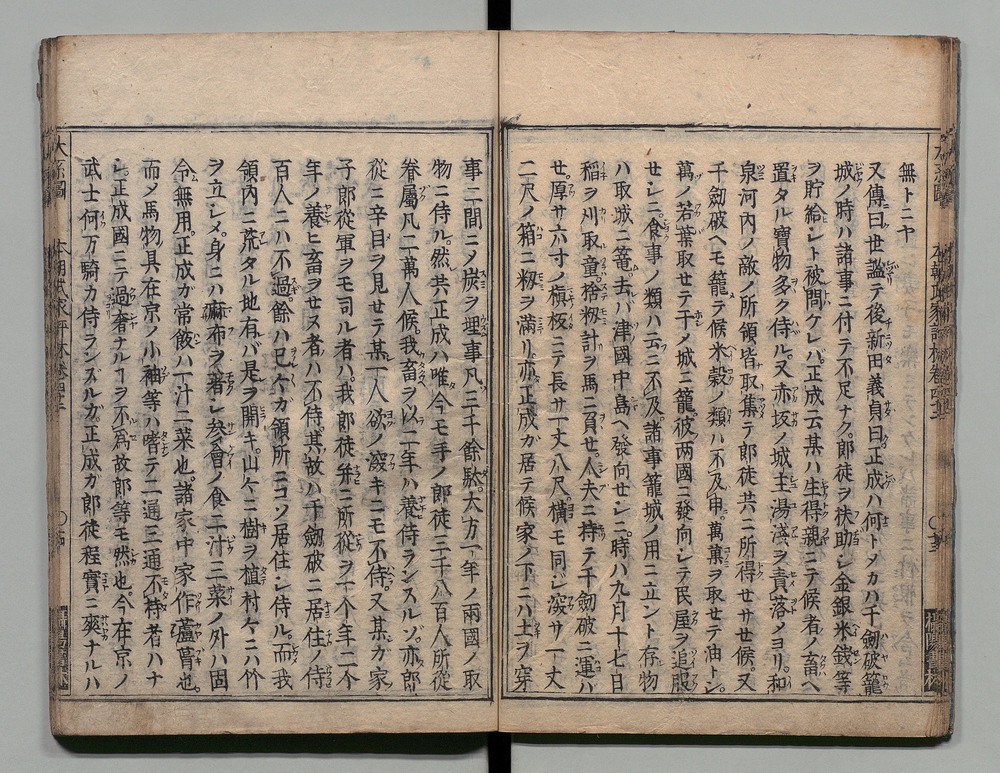 無トニヤ
又傳曰世謐テ後新田義貞曰正成ハ何トメカハ千劔破籠
城ノ時ハ諸事ニ付テ不足ナク郎徒ヲ扶助シ金銀米錢等
ヲ貯給シト被問ケレハ正成云某ハ生得親ニテ候者ノ畜ヘ
置タル寶物多ク侍ル又赤坂ノ城主湯淺ヲ責落ノヨリ和
泉河内ノ敵ノ所領皆取集テ郎徒共ニ所得セサセ候又
千劔破ヘモ籠ラテ候米穀ノ類ハ不及申萬菓ヲ取セテ油トシ
萬ノ若葉取セテ干メ城ニ籠彼两國ニ發向シテ民屋ヲ追服
セシニ食事ノ類ハ云ニ不及諸事籠城ノ用ニ立ント存物
ハ取城ニ篭去ハ津國中島ヘ發向セシニ時ハ九月十七日
稲ヲ刈取童捨籾計ヲ馬ニ負セ人夫ニ持テ千劔破ニ運ハ
セ厚サ六寸ノ槇板ニテ長サ一丈八尺横モ同シ深サ一丈
二尺ノ箱ニ籾ヲ滿リ亦正成ガ居テ候家ノ下ニハ土ヲ穿
事二間ニメ炭ヲ埋事凡三千餘駄大方一年ノ兩國ノ取
物ニ侍ル然共正成ハ唯今モ手ノ郎徒三千八百人所從
眷屬凡二萬人候我畜ヲ以二年ハ養侍ランスルソ亦郎
從ニ辛目ヲ見セテ某一人欲ノ深キニモ不侍又某カ家
子郎從軍ヲモ司ル者ハ我郎徒幷ニ所從ヲ一个年二个
年ノ養ヒ畜ヲセヌ者ハ不侍其故ハ千劔破ニ居住ノ侍
百人ニハ不過餘ハ巳ケガ領所ニコソ居住シ侍ル而我
領内ニ荒タル地有バ是ヲ開キ山ケニ樹ヲ植村ケニハ竹
ヲ立シメ身ニハ麻布ヲ著シ参會ノ食二汁三菜ノ外ハ固
令無用正成ガ常飯ハ一汁二菜也諸家中家作蘆葺也
而メ馬物具在京ノ小袖等ハ嗜テ二通三通不持者ハナ
シ正成國ニテ過奢ナルヿヲ不爲故郎等モ然也今在京ノ
武士何万騎カ侍ランズルガ正成ガ郎徒程實ニ爽ナルハ